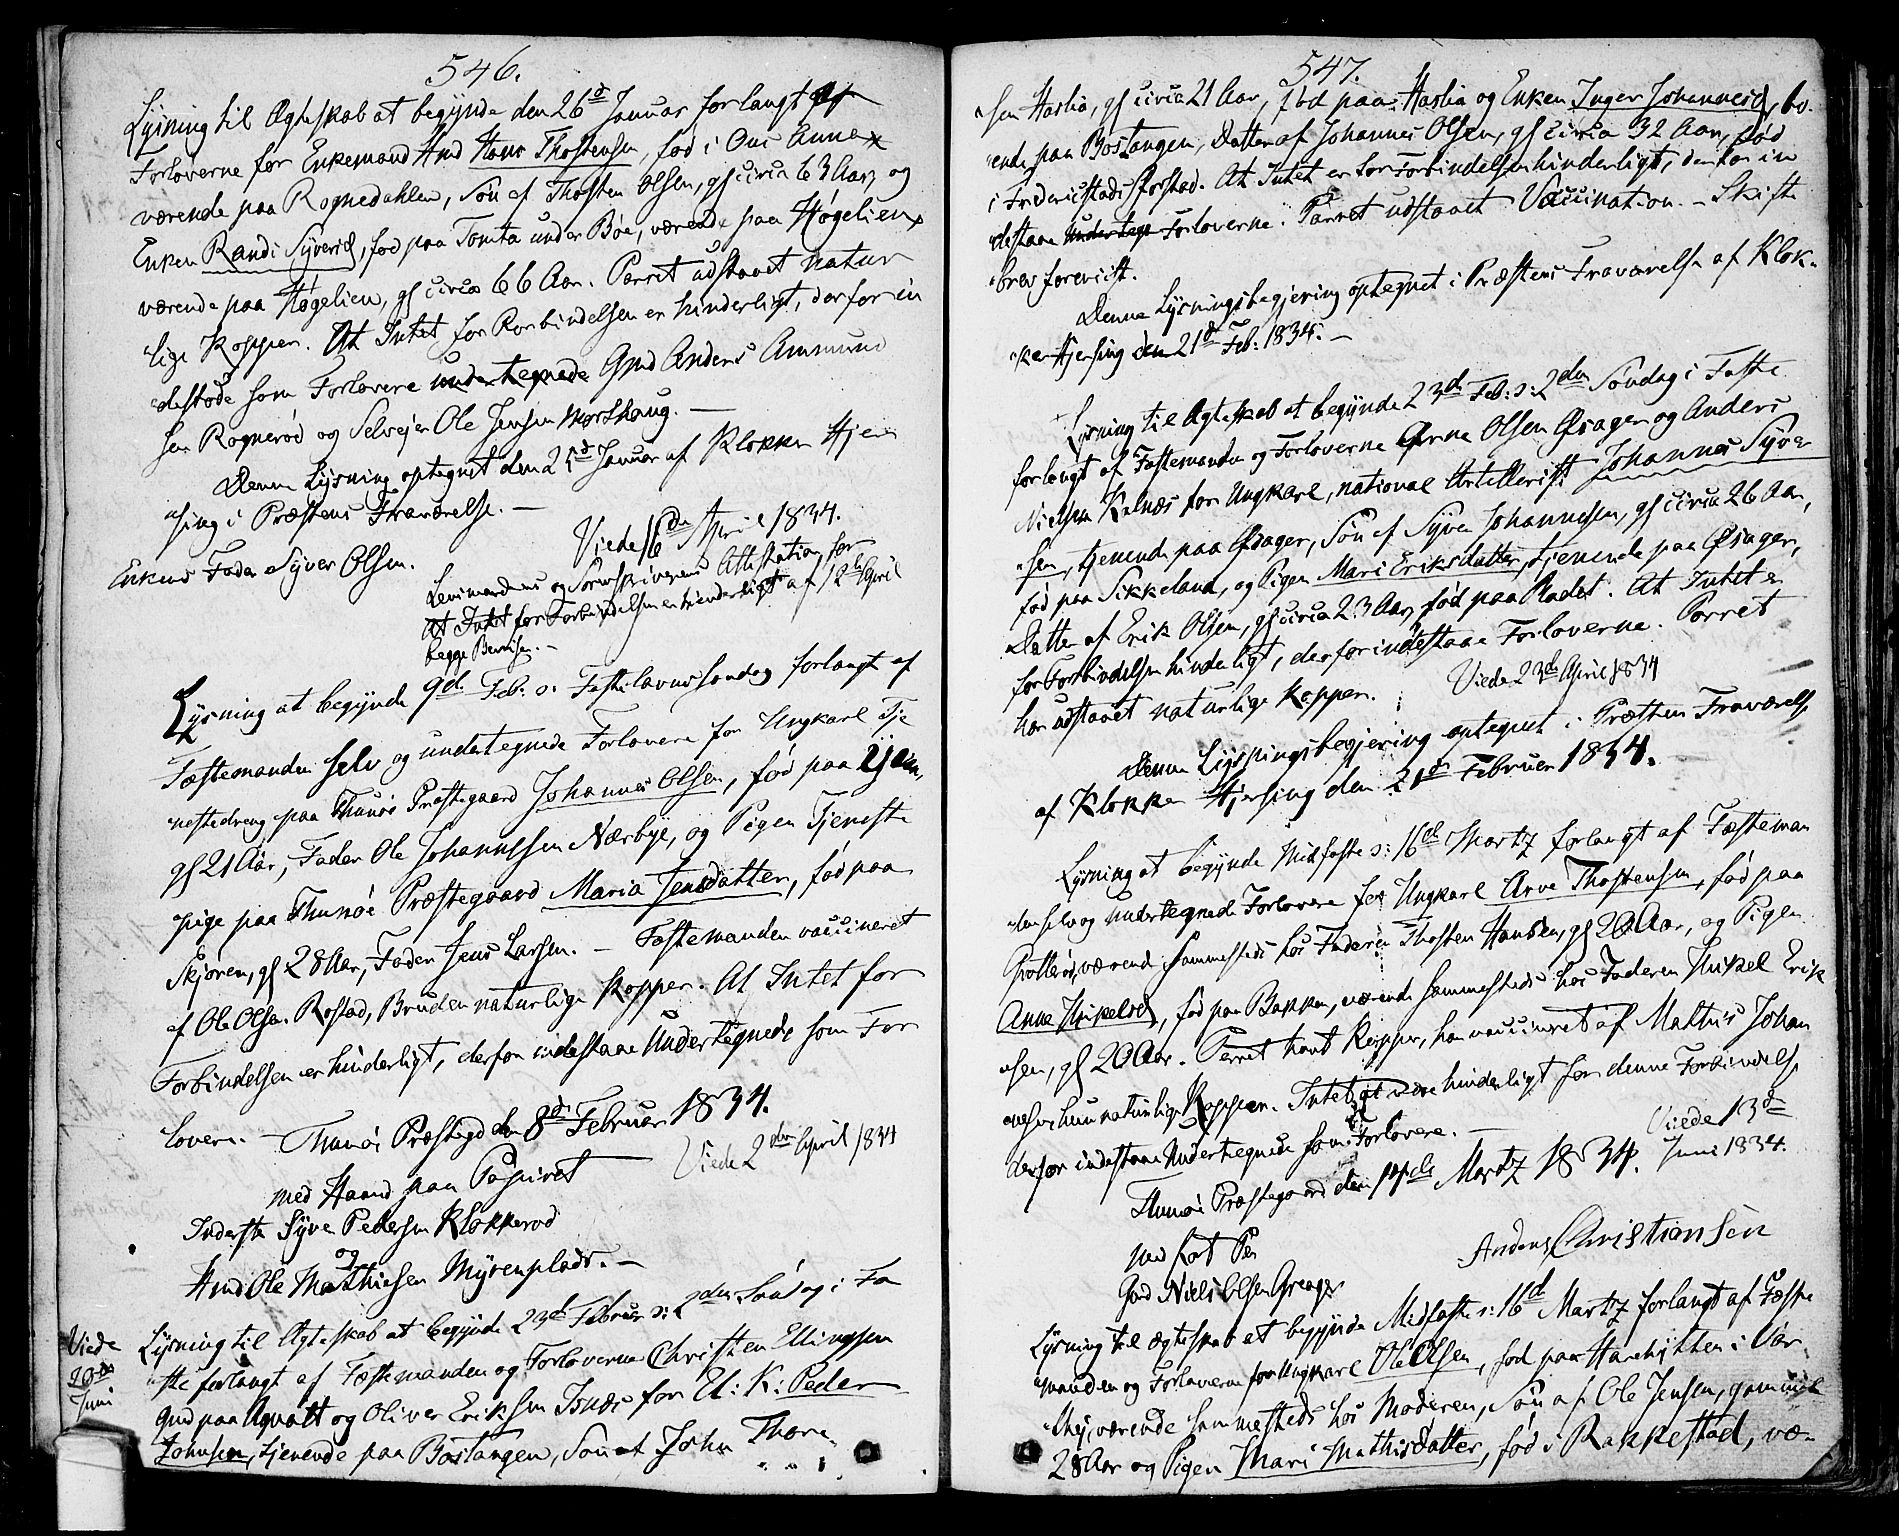 546.
Lysning til Ægteskab at begynde den 26d Januar forlangt af
Forloverne for Enkemand Hmd Hans Thostensen, fød i Ons Annex
værende paa Rognedahlen, Søn af Thosten Olsen, gl circa 63 Aar, og
Enken Randi Syversd, fød paa Tomta under Bøe, værende paa Høgelien,
værende paa Høgelien, gl circa 66 Aar. Parret udstaaet natur
lige Kopper. At Intet for Forbindelsen er hinderligt, derfor in
destode som Forlovere undertegnede Gmd Anders Ammund
sen Rognerød og Selvejer Ole Jensen Morshaug. —
Denne Lysning optegnet den 25d Januar af Klokker Hjer
sing i Præstens Fraværelse. —
Viede 16de April 1834.
Enkens Fader Syver Olsen.
Lensmandens og Sorenskriverens Attestation for
At Intet for Forbindelsen er hinderligt af 12te April
begge Beviser. —
Lysning at begynde 9d Feb: o: Fastelavnssondag forlangt af
Fæstemanden selv og undertegnede Forlovere for Ungkarl Tje
nestedreng paa Thunøe Præstegaard Johannes Olsen, fød paa
gl 21 Aar, Fader Ole Johannssen Nærbye, og Pigen Tjeneste
pige paa Thunøe Præstegaard Maria Jensdatter, fød paa
Skjøren, gl 28 Aar, Fader Jens Larsen. — Fæstemanden vaccineret
af Ole Olsen Rostad, Bruden naturlige Kopper. At Intet for
Forbindelsen er hinderligt, derfor indestaae Undertegnede som For
lovere. — Thunøe Præstegd den 8d Februar 1834.
Viede 2den April 1834
med Haand paa Papiret
Inderste Syver Pedersen Klokkerød
og
Hmd Ole Matthiesen Myrenplads. —
Viede
20de
Juni
Lysning til Ægteskab at begynde 23d Februar o: 2den Søndag i Fa
ste forlangt af Fæstemanden og Forloverne Christen Ellingsen
Gmd paa Agnatt og Oliver Eriksen Isnæs for El: K: Peder
Johnsen, tjenende paa Bostangen, Søn af John Thore
547.
sen Haslia, gl circa 21 Aar, fød paa Haslia og Enken Inger Johannesd, bo
ende paa Bostangen, Datter af Johannes Olsen, gl circa 32 Aar, fød
i Fridericstads Forstad. At Intet er for Forbindelsen hinderligt, derfor in
destaae Undertegn Forloverne. Parret udstaaet Vaccination. — Skifte
brev foreviist.
Denne Lysningsbegjering optegnet i Præstens Fraværelse af Klok
ker Hjersing den 21d Feb: 1834. —
Lysning til Ægteskab at begynde 23d Feb: o: 2den Søndag i Faste
forlangt af Fæstemanden og Forloverne Arne Olsen Øsager og Anders
Nielsen Kalnæs for Ungkarl, national Artillerist Johannes Syver
sen, tjenende paa Øsager, Søn af Syver Johannessen, gl circa 26 Aar,
fød paa Sikkeland, og Pigen Mari Eriksdatter, tjenende paa Øsager,
Datter af Erik Olsen, gl circa 23 Aar, fød paa Rødet. At Intet er
for Forbindelsen hinderligt, derfor indestaae Forloverne. Parret
har udstaaet naturlige Kopper.
Viede 23de April 1834
Denne Lysningsbegjering optegnet i Præstens Fraværelse
af Klokker Hjersing den 21d Februar 1834.
Lysning at begynde Midfaste o: 16de Martz forlangt af Fæsteman
den selv og Undertegnede Forlovere for Ungkarl Arve Thostensen, fød paa
værende sammesteds hos Faderen Thosten Hansen, gl 20 Aar, og Pigen
Anne Mikelsd, fød paa Bakken, værende sammesteds hos Faderen Mikel Erik
sen, gl 20 Aar. Parret havt Kopper, han vaccineret af Mathis Johan
nesen, hun naturlige Kopper. Intet at være hinderligt for denne Forbindelse
derfor indestaae Undertegnede som Forlovere. —
Viede 13de
Juni 1834.
Thunøe Præstegaard den 14de Martz 1834.
med ført Pen
Gmd Niels Olsen Greager
Anders Christiansen
Lysning til ægteskab at begynde Midfaste o: 16d Martz forlangt af Fæste
manden og Forloverne for Ungkarl Ole Olsen, fød paa Harehytten i Var
sogn, værende sammesteds hos Moderen, Søn af Ole Jensen, gammel
28 Aar og Pigen Mari Mathisdatter, fød i Rakkestad, væ